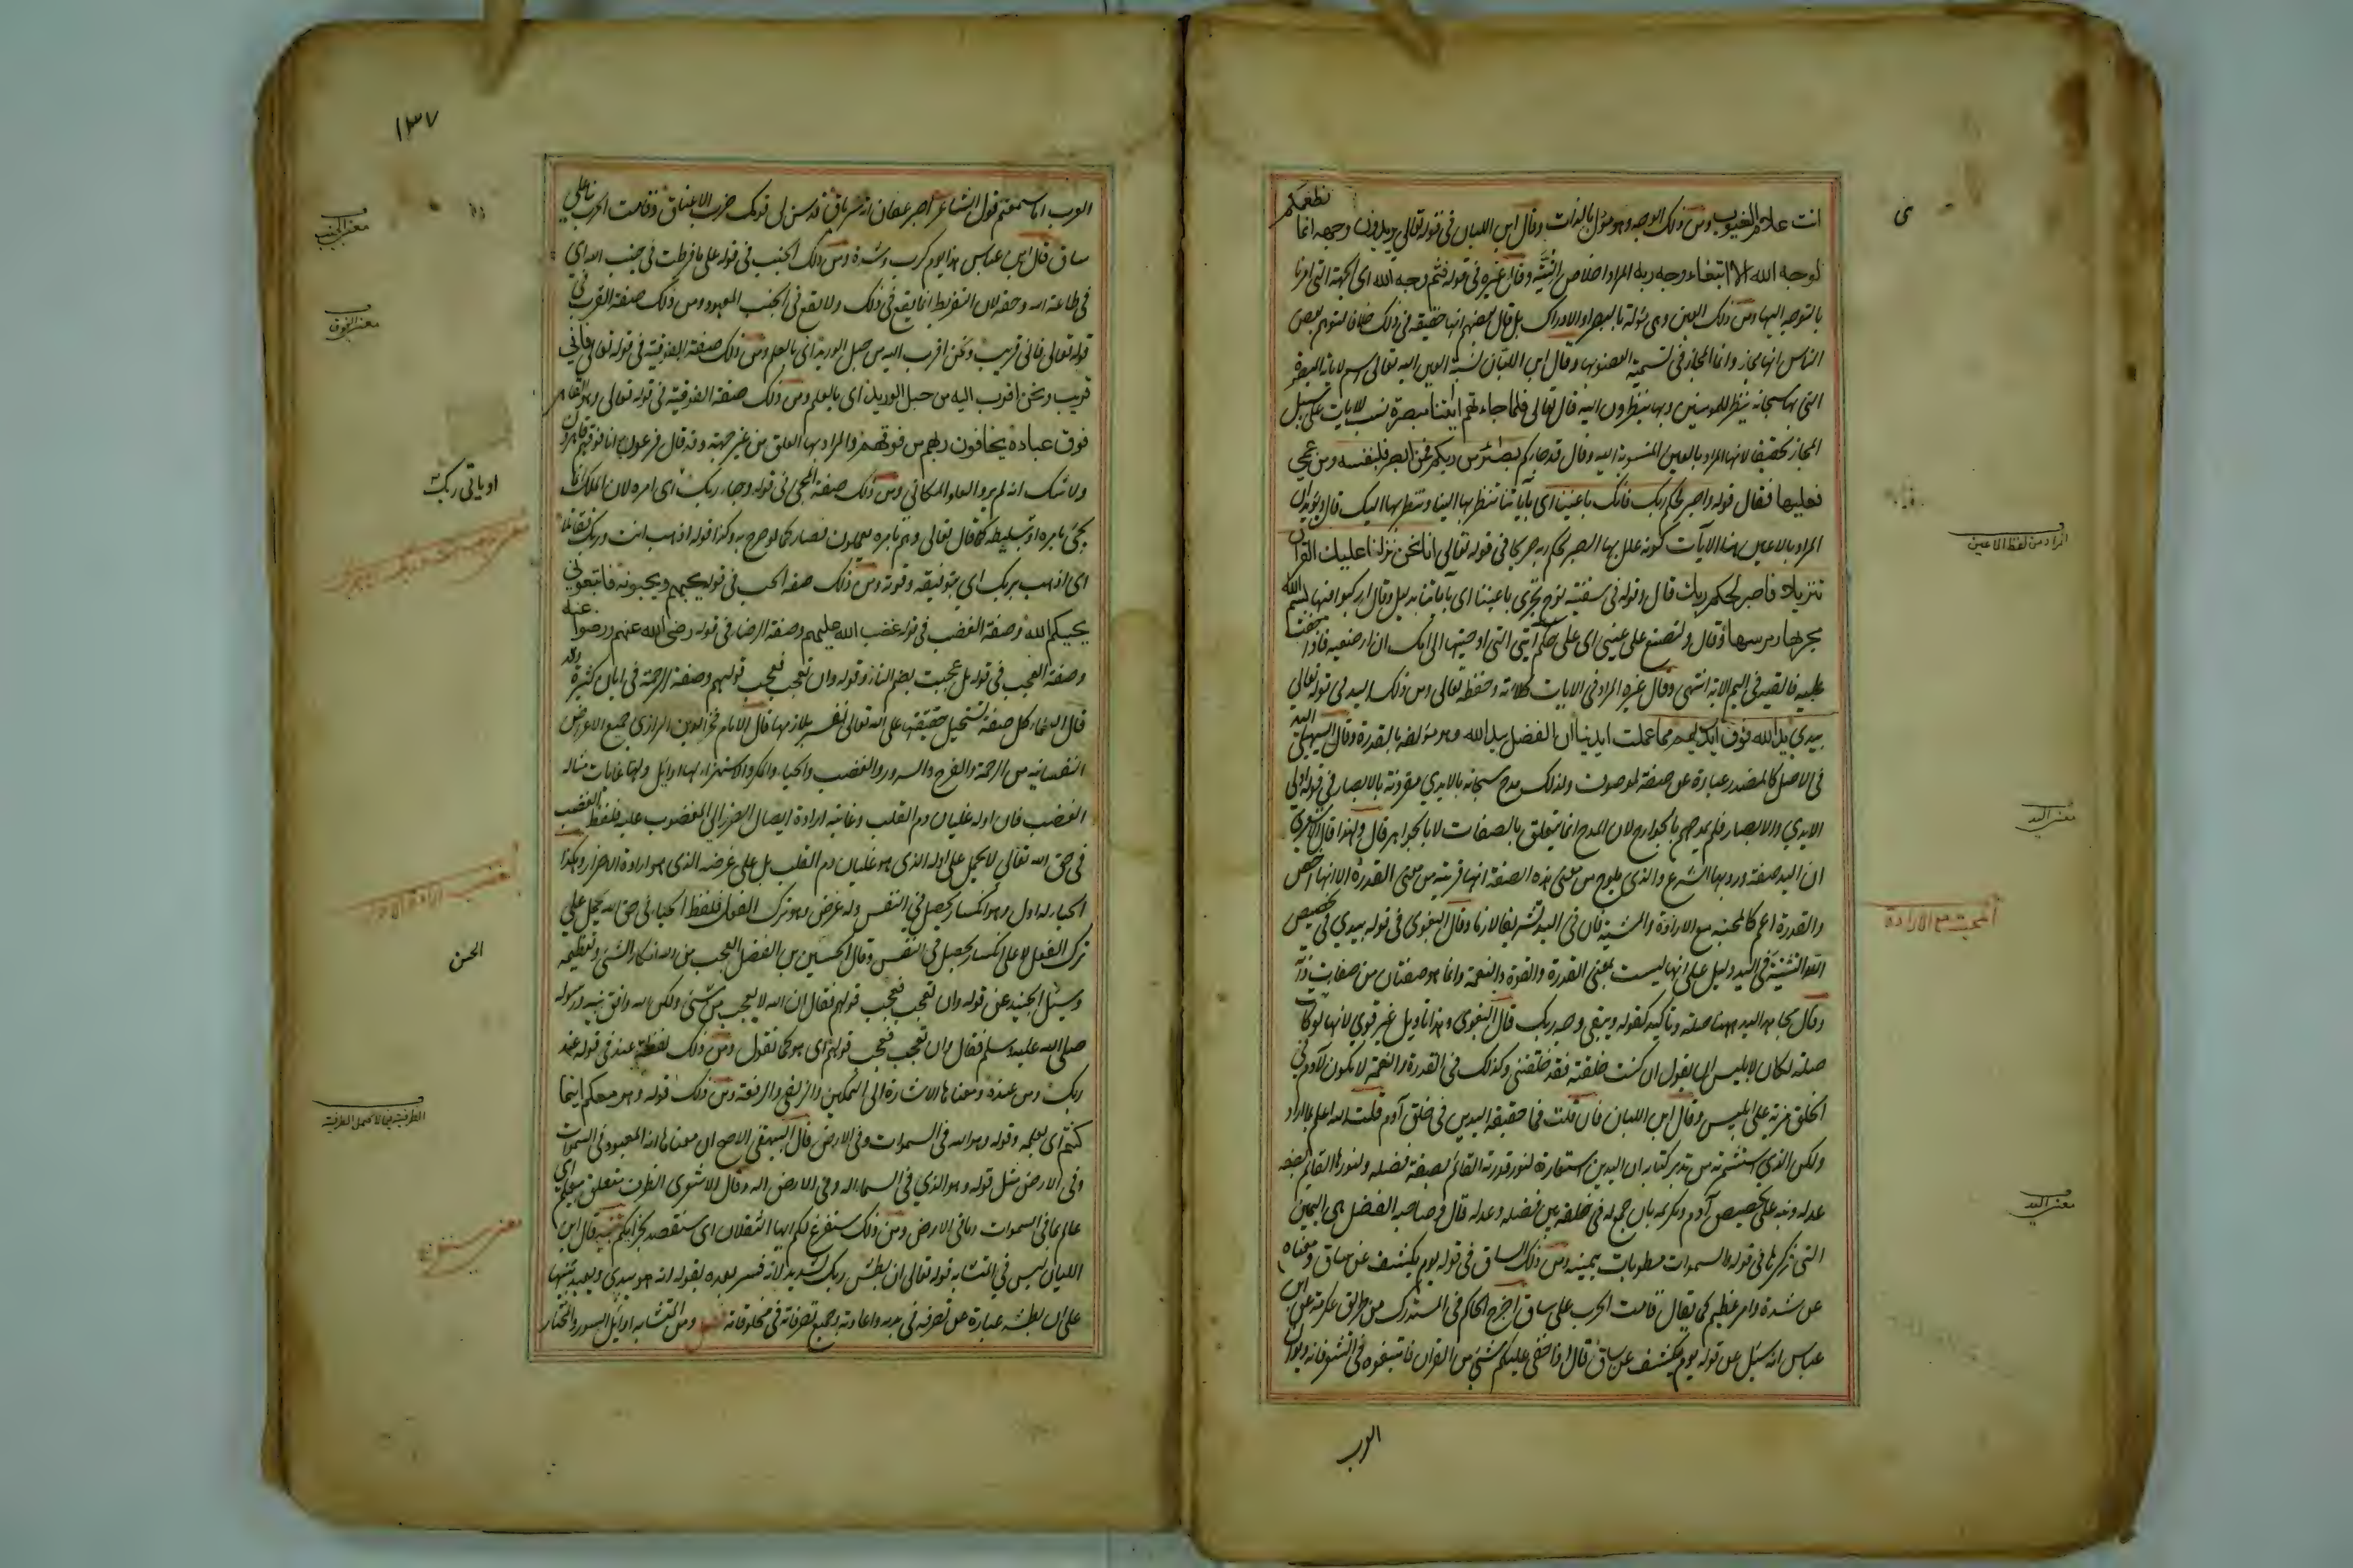 انت علام الغيوب ومن ذلك الوجه وهو مؤل بالذات وقال ابن اللبان في قوله تعالى يريدون وجهه انما نطعمكم
لوجه الله الا ابتغاء وجه ربه المراد اخلاص النية وقال غيره في قوله فثم وجه الله اى الجهة التى امرنا
بالتوجه اليها ومن ذلك العين وهى مؤلة بالبصر او الادراك بل قال بعضهم انها حقيقة في ذلك خلافا لتوهم بعض
الناس انها مجاز وانما المجاز في تسمية العضو بها وقال ابن اللبان نسبة العين اليه تعالى اسم لاياته المبصرة
التى بها سبحانه ينظر للمومنين وبها ينظرون اليه قال تعالى فلما جاءتهم ايتنا مبصرة نسب للايات على سبيل
المجاز تحقيقا لانها المراد بالعين المنسوبة اليه وقال قد جاءكم بصائر من ربكم فمن ابصر فلنفسه ومن عمى
فعليها فقال قوله واصبر لحكم ربك فانك باعيننا اى بآياتنا تنظر بها الينا وننظر بها اليك قال ويؤيد ان
المراد بالاعين هنا الآيات كونه علل بها الصبر لحكم ربه صريحا في قوله تعالى انا نحن نزلنا عليك القرآن
تنزيلا فاصبر لحكم ربك قال وقوله في سفينة نوح تجرى باعيننا اى بآياتنا بدليل وقال اركبوا فيها بسم الله
مجرىها ومرسىها وقال ولتصنع على عينى اى على حكم آيتى التى اوحيتها الى امك ان ارضعيه فاذا خفت
عليه فالقيه في اليم الاية انتهى وقال غيره المراد في الايات كلاءته وحفظه تعالى ومن ذلك اليد في قوله تعالى
بيدي يد الله فوق ايديهم مما عملت ايدينا ان الفضل بيد الله وهى مؤلة بالقدرة وقال السهيلى اليد
في الاصل كالمصدر عبارة عن صفة لموصوف ولذلك مدح سبحانه بالايدى مقرونة بالابصار في قوله اولى
الايدي والابصار فلم يمدحهم بالجوارح لان المدح انما يتعلق بالصفات لا بالجواهر قال ولهذا قال الاشعرى
ان اليد صفة ورد بها الشرع والذى يلوح من معنى هذه الصفة انها قريبة من معنى القدرة الا انها اخص
والقدرة اعم كالمحبة مع الارادة والمشية فان في اليد تشريفا لازما وقال البغوى في قوله بيدي في تحقيق
الله التثنية في اليد دليل على انها ليست بمعنى القدرة والقوة والنعمة وانما هو صفتان من صفات ذاته
وقال مجاهد اليد ههنا صلة وتأكيد كقوله ويبقى وجه ربك قال البغوى وهذا تاويل غير قوي لانها لو كانت
صلة لكان لابليس ان يقول ان كنت خلقته فقد خلقتنى وكذلك في القدرة والنعمة لا يكون لآدم في
الخلق مزية على ابليس وقال ابن اللبان فان قلت فما حقيقة اليدين في خلق آدم قلت الله اعلم بما اراد
ولكن الذي استثمرته من تدبر كتابه ان اليدين استعارة لنور قدرته القائم بصفة فضله ولنورها القائم بصفة
عدله ونبه على تخصيص آدم وتكريمه بان جمع له في خلقه بين فضله وعدله قال وصاحبة الفضل هى اليمين
التى ذكرها في قوله والسموات مطويات بيمينه ومن ذلك الساق في قوله يوم يكشف عن ساق ومعناه
عن شدة وامر عظيم كما يقال قامت الحرب على ساق اخرج الحاكم في المستدرك من طريق عكرمة عن ابن
عباس انه سئل عن قوله يوم يكشف عن ساق قال اذا خفى عليكم شئ من القرآن فابتغوه في الشعر فانه ديوان
العرب
المراد من لفظ الاعين
معنى اليد
المحبة مع الارادة
معنى اليد
١٣٧
العرب اما سمعتم قول الشاعر اصبر عناق انه شر باق قد سن لى قومك ضرب الاعناق وقامت الحرب بنا على
ساق قال ابن عباس هذا يوم كرب وشدة ومن ذلك الجنب في قوله على ما فرطت في جنب الله اى
في طاعة الله وحقه لان التفريط انما يقع في ذلك ولا يقع في الجنب المعهود ومن ذلك صفة القرب في
قوله تعالى فانى قريب ونحن اقرب اليه من حبل الوريد اى بالعلم ومن ذلك صفة الفوقية في قوله تعالى فانى
قريب ونحن اقرب اليه من حبل الوريد اى بالعلم ومن ذلك صفة الفوقية في قوله تعالى وهو القاهر
فوق عباده يخافون ربهم من فوقهم والمراد بها العلو من غير جهة وقد قال فرعون وانا فوقهم قاهرون
ولا شك انه لم يرد العلو المكانى ومن ذلك صفة المجى في قوله وجاء ربك اى امره لان الملك انما
يجئ بامره او بتسليطه كما قال تعالى وهم بامره يعملون فصار كما لو صرح به وكذا قوله اذهب انت وربك فقاتلا
اى اذهب بربك اى بتوفيقه وقوته ومن ذلك صفة الحب في قوله يحبهم ويحبونه فاتبعونى
يحببكم الله وصفة الغضب في قوله غضب الله عليهم وصفة الرضا في قوله رضى الله عنهم ورضوا عنه
وصفة العجب في قوله بل عجبت بضم التاء وقوله وان تعجب فعجب قولهم وصفة الرحمة في ايات كثيرة وقد
قال العلماء كل صفة تستحيل حقيقتها على الله تعالى تفسر بلازمها قال الامام فخر الدين الرازى جميع الاعراض
النفسانيه من الرحمة والفرح والسرور والغضب والحياء والمكر والاستهزاء لها اوائل ولها غايات مثاله
الغضب فان اوله غليان دم القلب وغايته ارادة ايصال الضرر الى المغضوب عليه فلفظ الغضب
في حق الله تعالى لا يحمل على اوله الذى هو غليان دم القلب بل على غرضه الذى هو ارادة الاضرار وكذا
الحياء له اول وهو انكسار يحصل في النفس وله غرض وهو ترك الفعل فلفظ الحياء في حق الله يحمل على
ترك الفعل لا على انكسار يحصل في النفس وقال الحسين بن الفضل العجب من الله انكار الشئ وتعظيمه
وسئل الجنيد عن قوله وان تعجب فعجب قولهم فقال ان الله لا يعجب من شئ ولكن الله وافق نبيه ورسوله
صلى الله عليه وسلم فقال وان تعجب فعجب قولهم اى هو كما تقول ومن ذلك لفظة عند في قوله عند
ربك ومن عنده ومعناها الاشارة الى التمكين والزلفى والرفعة ومن ذلك قوله وهو معكم اينما
كنتم اى بعلمه وقوله وهو الله في السموات وفي الارض قال البيهقى الاصح ان معناها انه المعبود في السموات
وفى الارض مثل قوله وهو الذي في السماء اله وفى الارض اله وقال الاشعرى الظرف متعلق بيعلم اى
عالم بما في السموات وما في الارض ومن ذلك سنفرغ لكم ايها الثقلان اى سنقصد لجزائكم تنبيه قال ابن
اللبان ليس في المتشابه قوله تعالى ان بطش ربك لشديد لانه فسر بعده بقوله انه هو يبدئ ويعيد تنبيها
على ان بطشه عبارة عن تصرفه في بدئه واعادته وجميع تصرفاته في مخلوقاته فصل ومن المتشابه اوائل السور والمختار
معنى الجنب
معنى الفوق
او ياتى ربك
الحسن